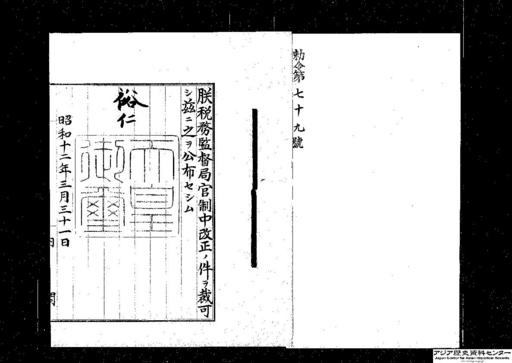 勅令第七十九號
朕税務監督局官制中改正ノ件ヲ裁可
シ茲ニ之ヲ公布セシム
裕仁
天皇御璽
昭和十二年三月三十一日
アジア歴史資料センター
Japan Center for Asian Historical Records